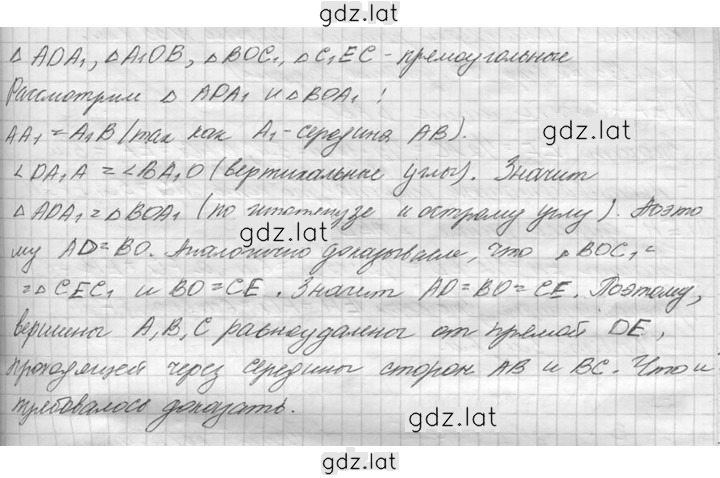 gdz.lat
△ ADA₁, △ A₁OB, △ BOC₁, △ C₁EC - прямоугольные
Рассмотрим △ ADA₁ и △ BOA₁ :
AA₁ = A₁B (так как A₁ - середина AB).
gdz.lat
∠DA₁A = ∠BA₁O (вертикальные углы). Значит
△ ADA₁ = △ BOA₁ (по гипотенузе и острому углу). Поэто
gdz.lat
му AD = BO. Аналогично доказываем, что △ BOC₁ =
= △ CEC₁ и BO = CE. Значит AD = BO = CE. Поэтому,
вершины A, B, C равноудалены от прямой DE,
проходящей через середины сторон AB и BC. Что и
требовалось доказать.
gdz.lat
gdz.lat